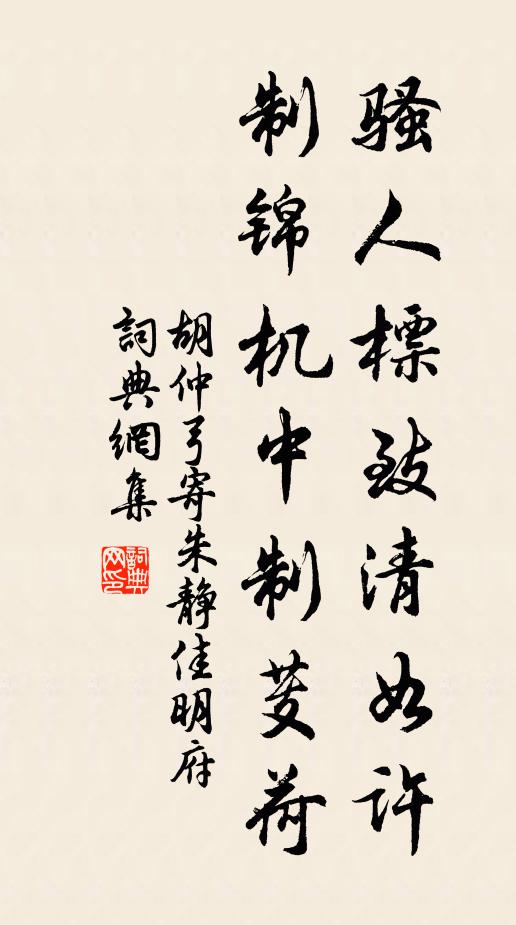 骚人标致清如许
制锦机中制芰荷
胡仲弓寄朱静佳明府
詞典網集
詞典
网印